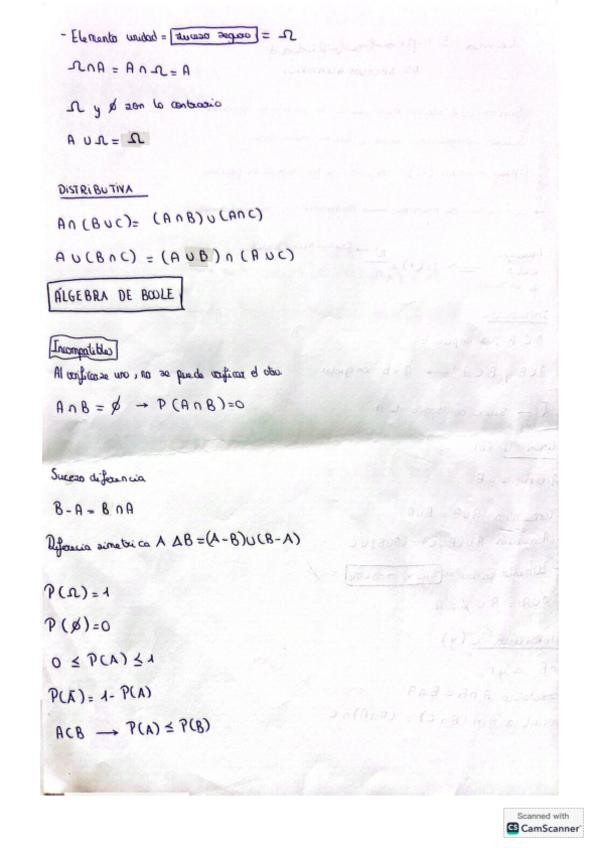 - Elemento unidad = suceso seguro = Ω
Ω∩A = A∩Ω = A
Ω y ∅ son lo contrario
A ∪ Ω = Ω
DISTRIBUTIVA
A∩(B∪C)= (A∩B)∪(A∩C)
A∪(B∩C) = (A∪B)∩(A∪C)
ÁLGEBRA DE BOOLE
Incompatibles
Al verificarse uno, no se puede verificar el otro
A∩B = ∅ → P(A∩B)=0
Suceso diferencia
B-A = B∩A
Diferencia simetrica A ΔB=(A-B)∪(B-A)
P(Ω)=1
P(∅)=0
0 ≤ P(A) ≤ 1
P(Ā)= 1- P(A)
A⊂B → P(A) ≤ P(B)
Scanned with
CS CamScanner